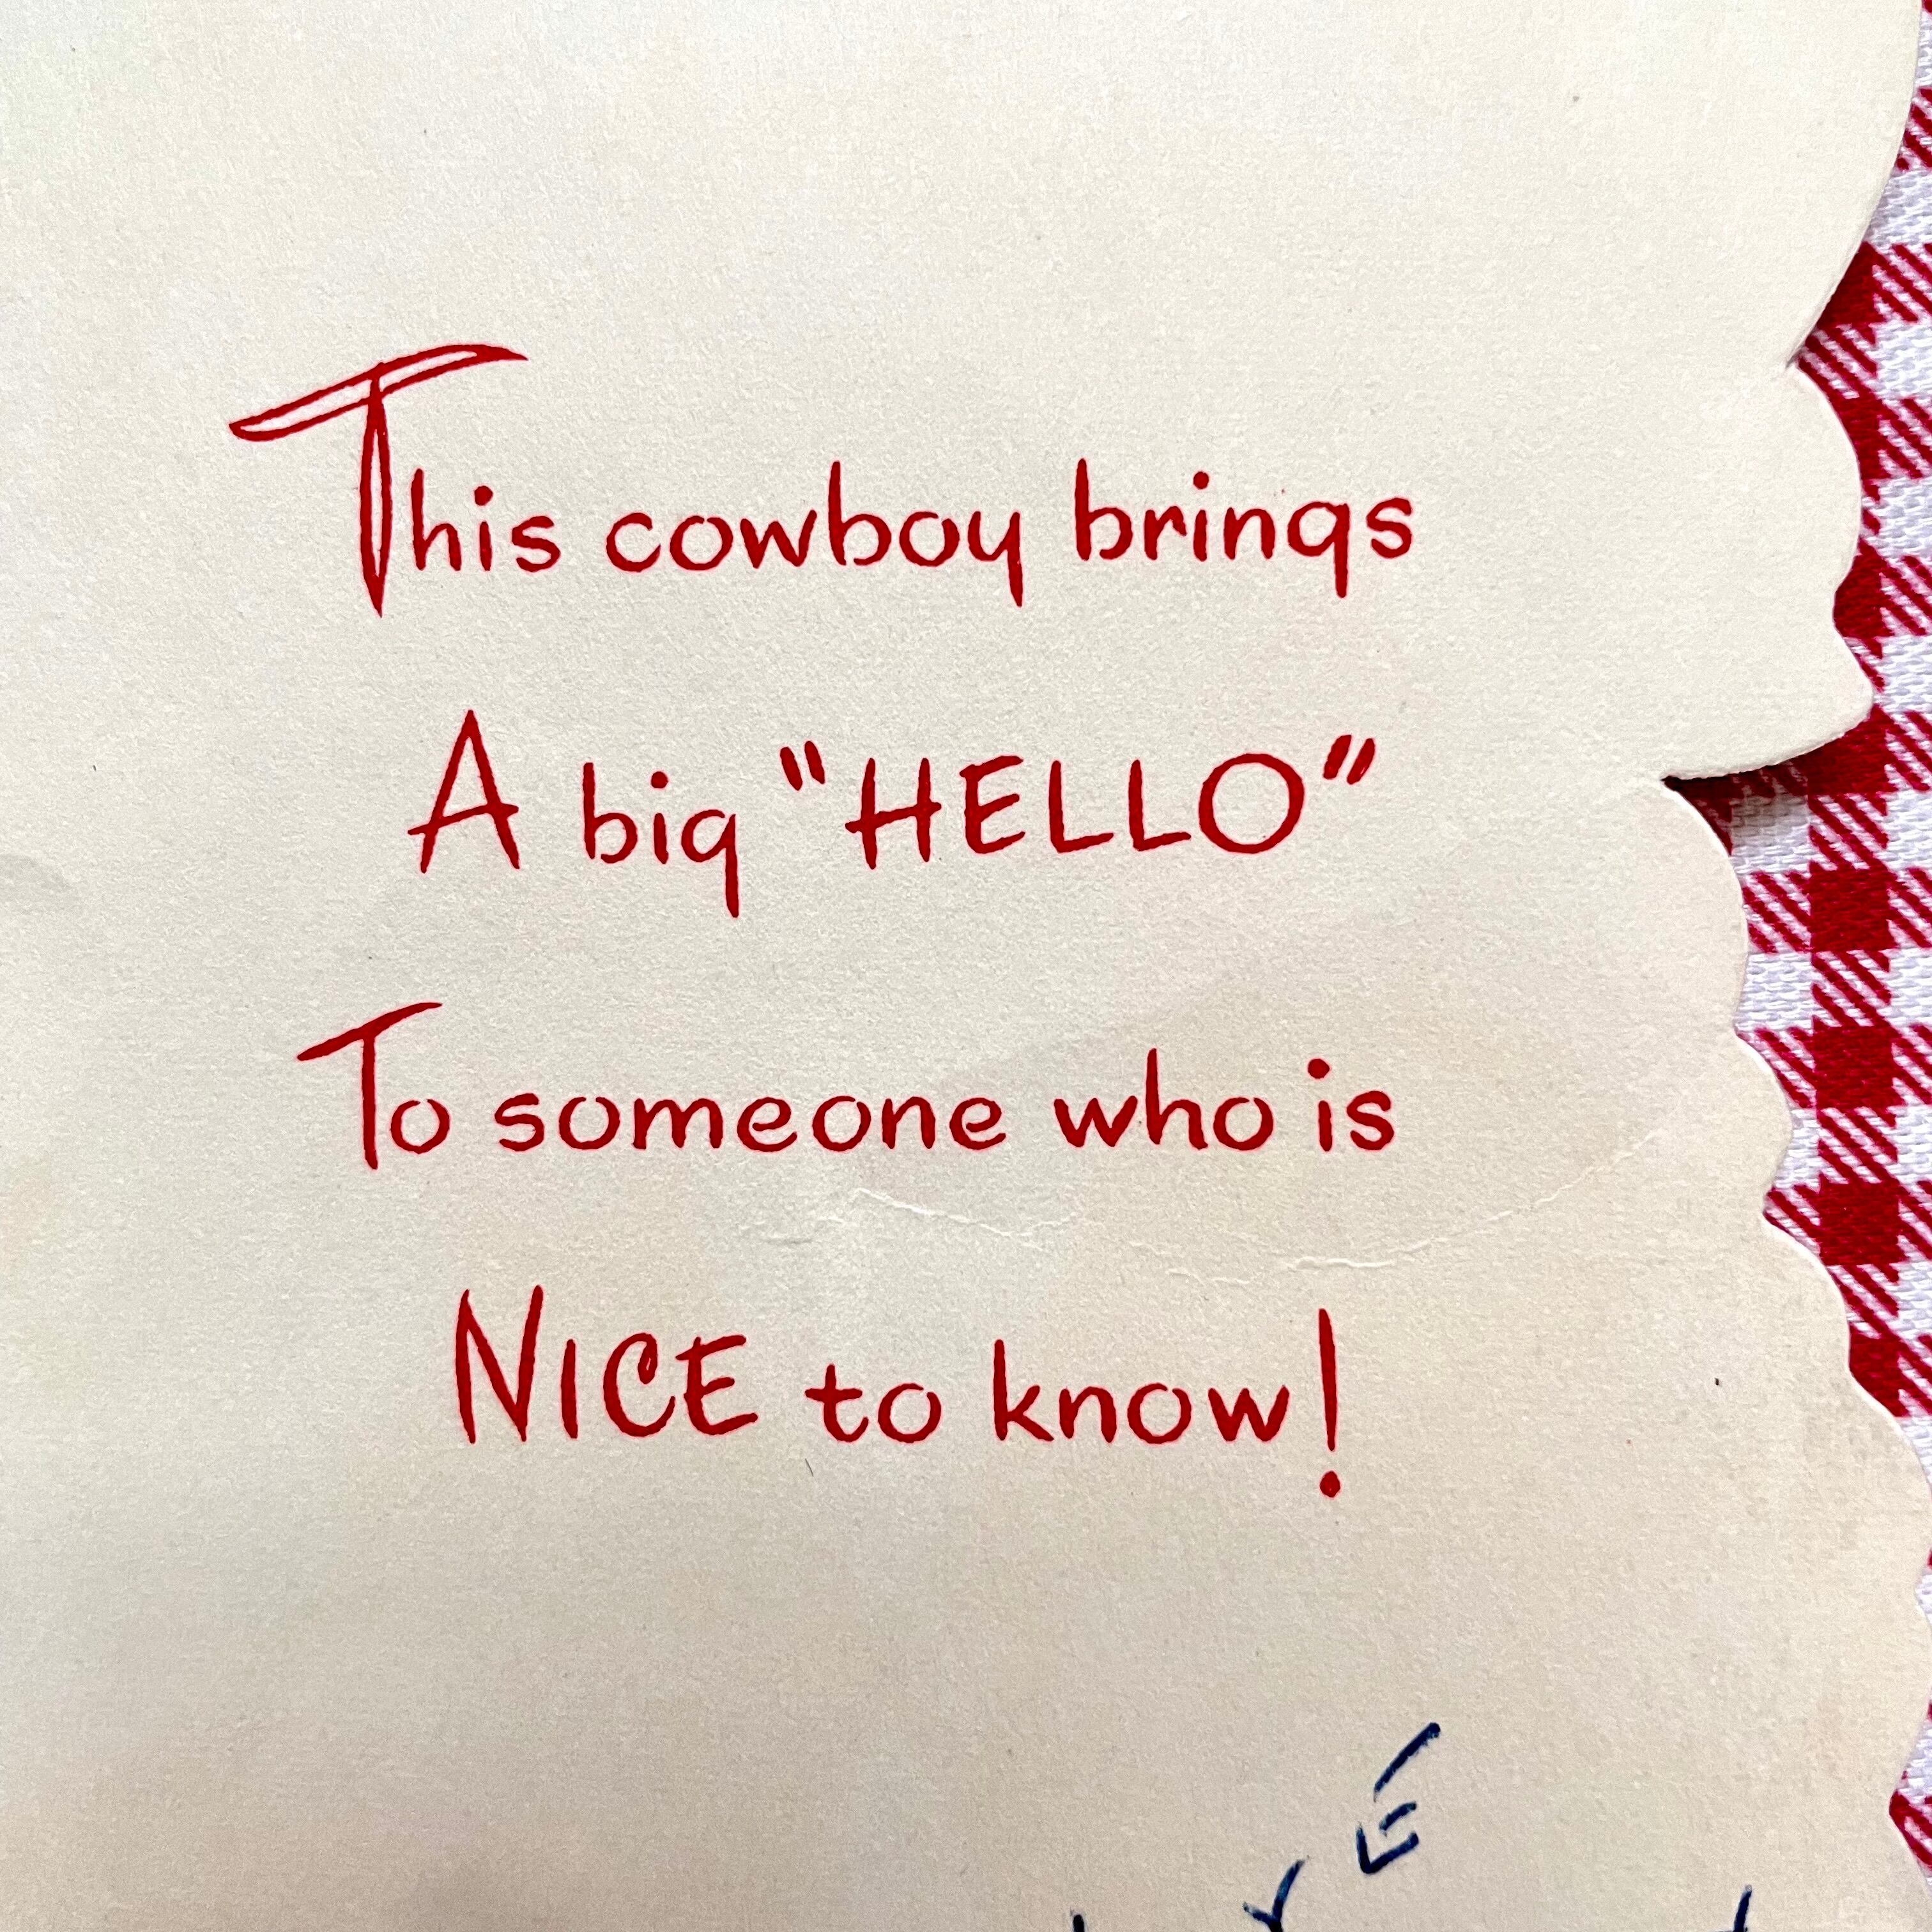 This cowboy brings
A big "HELLO"
To someone who is
NICE to know!